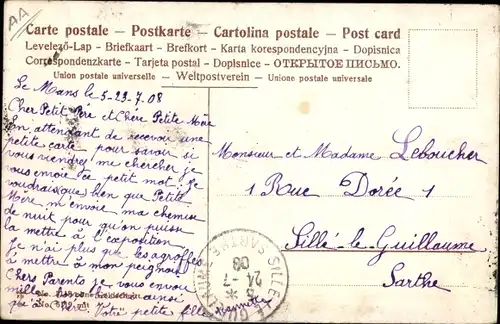 AA
Carte postale — Postkarte — Cartolina postale — Post card
Levelező-Lap — Briefkaart — Brefkort — Karta korespondencyjna — Dopisnica
Correspondenzkarte — Tarjeta postal — Dopisnice — ОТКРЫТОЕ ПИСЬМО.
Union postale universelle — Weltpostverein — Unione postale universale
Le Mans le 5-23.7.08
Cher Petit Père et Chère Petite Mère
En attendant de recevoir une
petite carte pour savoir si
vous viendrez me chercher je
vous envoie ce petit mot. Je
voudrais que bien que Petite
Mère m'envoie ma chemise
de nuit pour qu'on puisse
la mettre à l'exposition
Je n'ai plus que les agraffes
à mettre à mon peignoir
Chers Parents je vous envoie
mille ainsi
Votre petite fille Jeannette
Monsieur et Madame Leboucher
1 Rue Dorée 1
Sillé-le-Guillaume
Sarthe
SILLÉ-LE-GUILLAUME
SARTHE
24 - 7
08